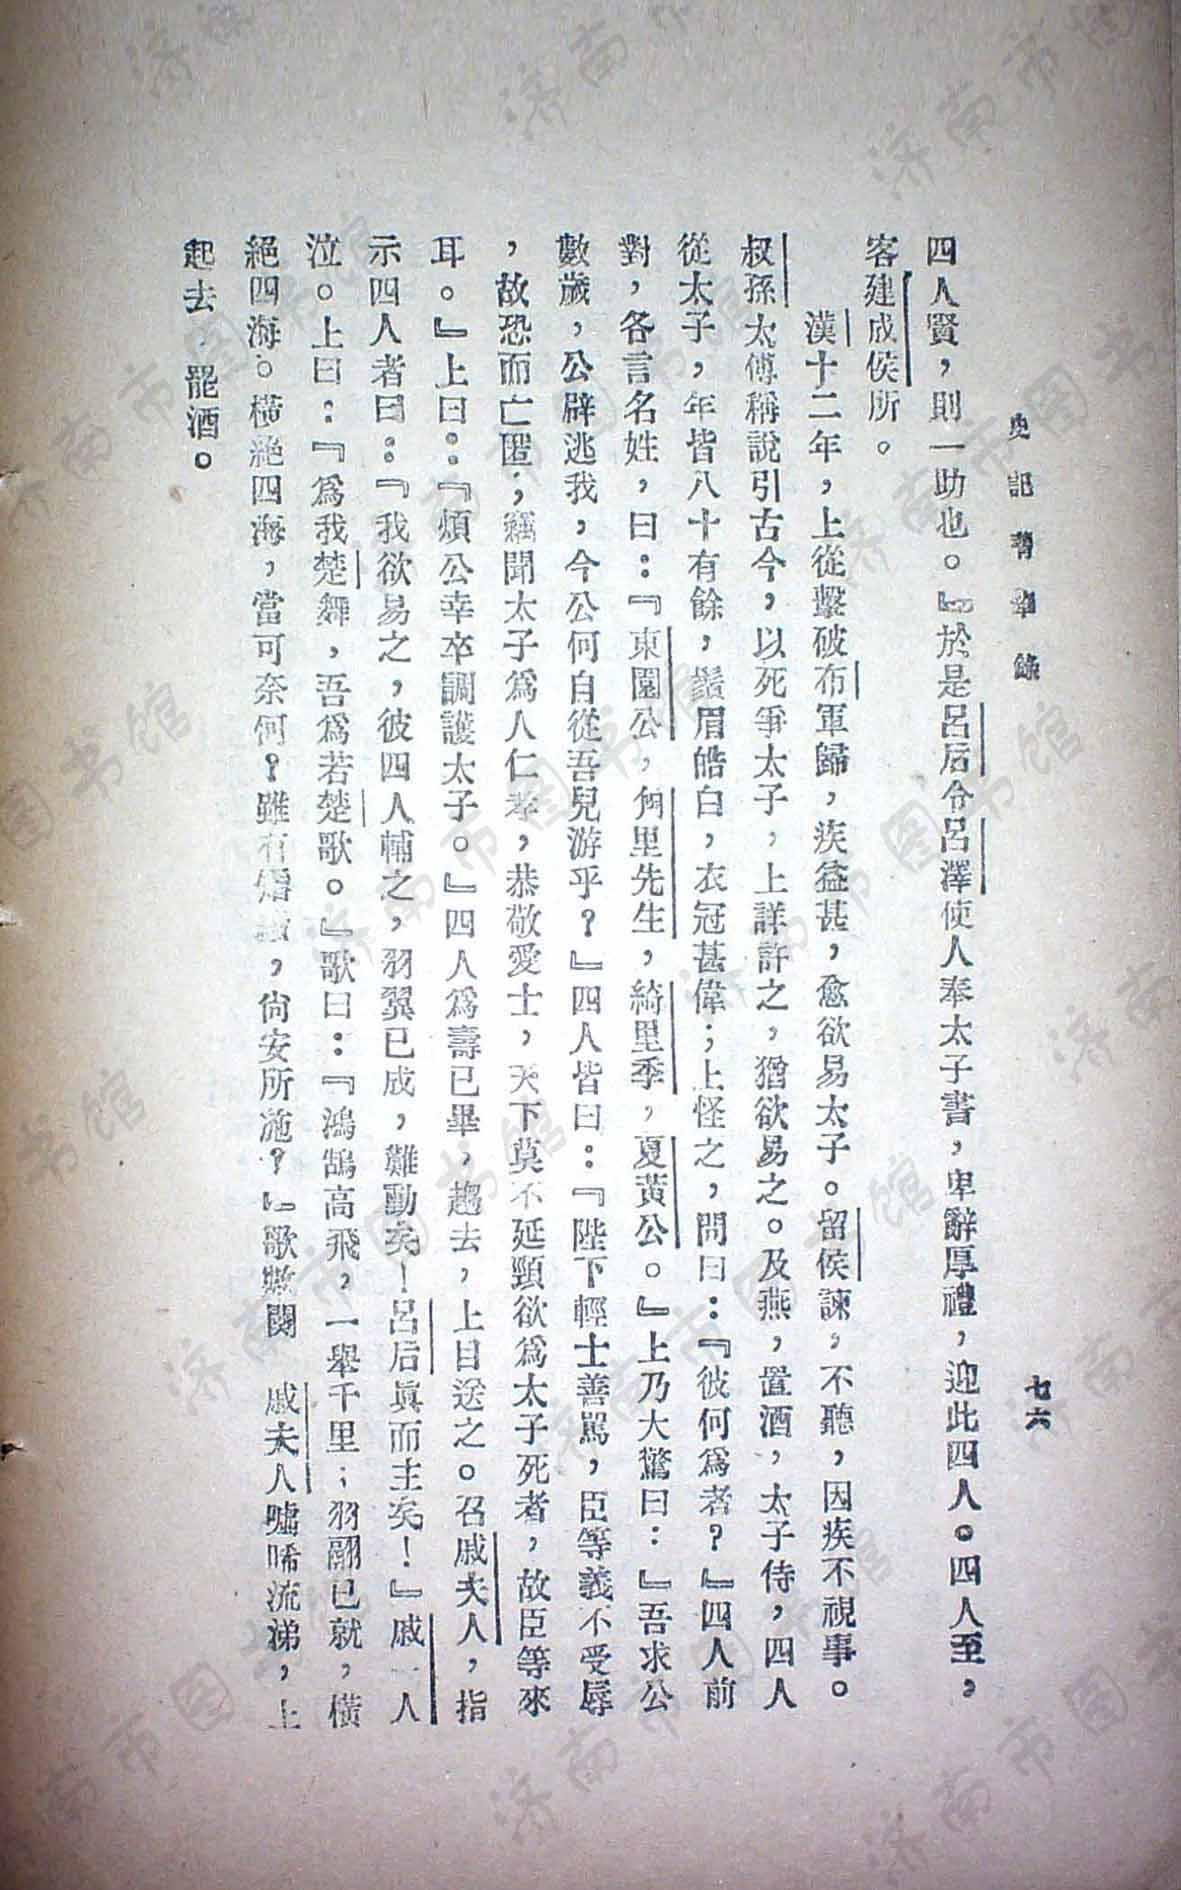 史記菁華錄
七六
四人賢，則一助也。』於是呂后令呂澤使人奉太子書，卑辭厚禮，迎此四人。四人至，
客建成侯所。
漢十二年，上從擊破布軍歸，疾益甚，愈欲易太子。留侯諫，不聽，因疾不視事。
叔孫太傅稱說引古今，以死爭太子，上詳許之，猶欲易之。及燕，置酒，太子侍，四人
從太子，年皆八十有餘，鬚眉皓白，衣冠甚偉；上怪之，問曰：『彼何爲者？』四人前
對，各言名姓，曰：『東園公，甪里先生，綺里季，夏黃公。』上乃大驚曰：』吾求公
數歲，公辟逃我，今公何自從吾兒游乎？』四人皆曰：『陛下輕士善罵，臣等義不受辱
，故恐而亡匿；竊聞太子爲人仁孝，恭敬愛士，天下莫不延頸欲爲太子死者，故臣等來
耳。』上曰：『煩公幸卒調護太子。』四人爲壽已畢，趨去，上目送之。召戚夫人，指
示四人者曰：『我欲易之，彼四人輔之，羽翼已成，難動矣！呂后眞而主矣！』戚人
泣。上曰：『爲我楚舞，吾爲若楚歌。』歌曰：『鴻鵠高飛，一舉千里；羽翮已就，橫
絕四海。橫絕四海，當可奈何？雖有，尙安所施？』歌數闋 戚夫人噓唏流涕，上
起去，罷酒。
济南市图书馆